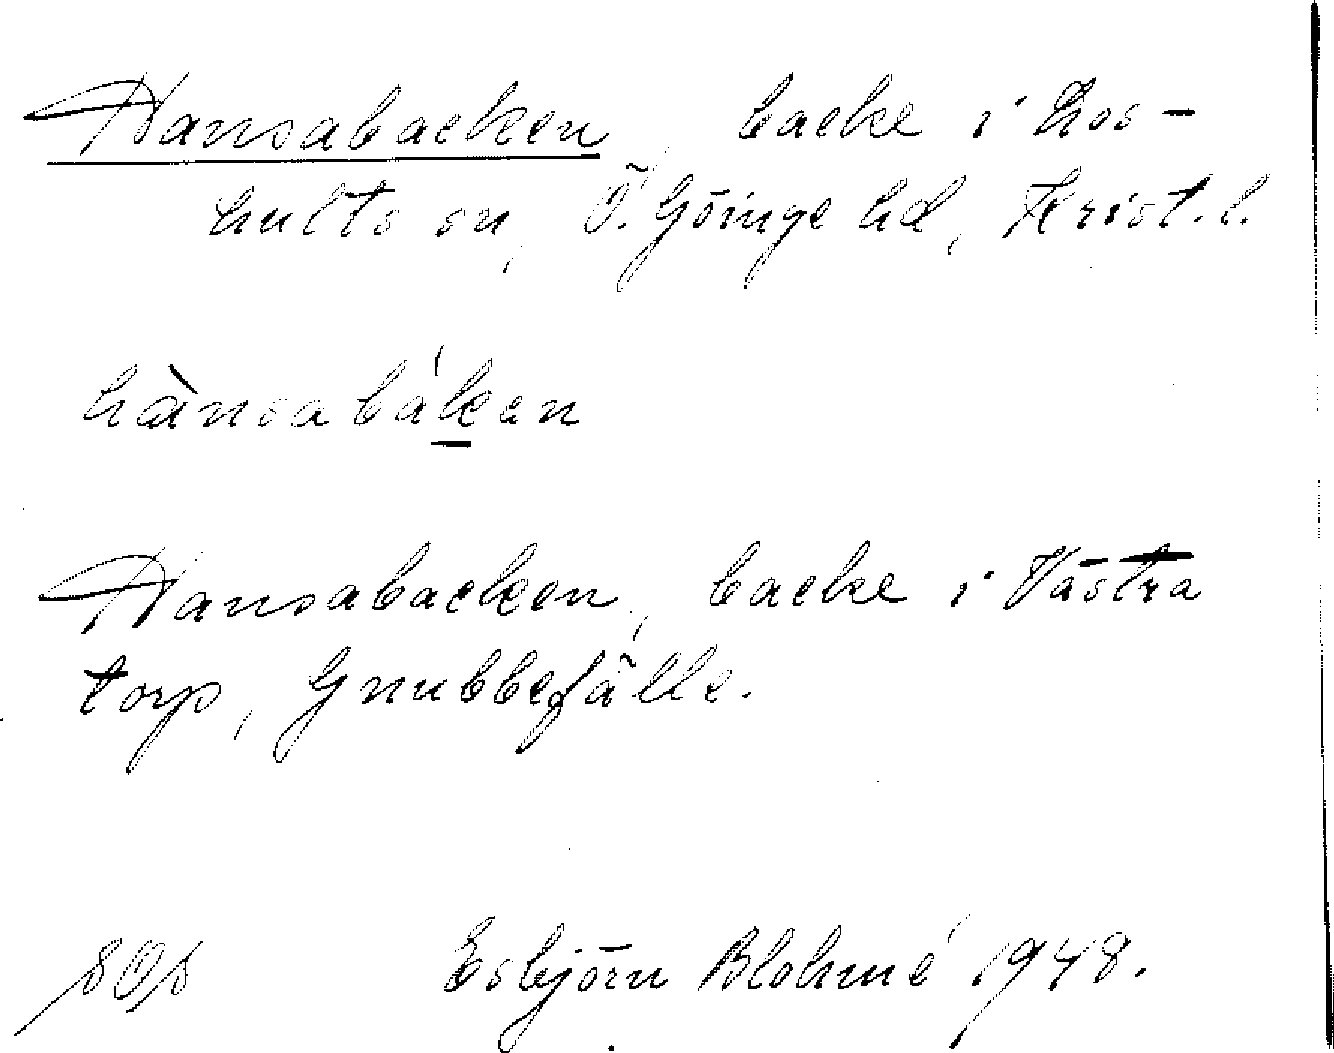 Hansabacken, backe i Los-
hults sn, Ö. Göinge hd, Krist. l.
hànsabáken
Hansabacken, backe i Västra
torp, Gnubbefälle.
Esbjörn Blohmé 1948.